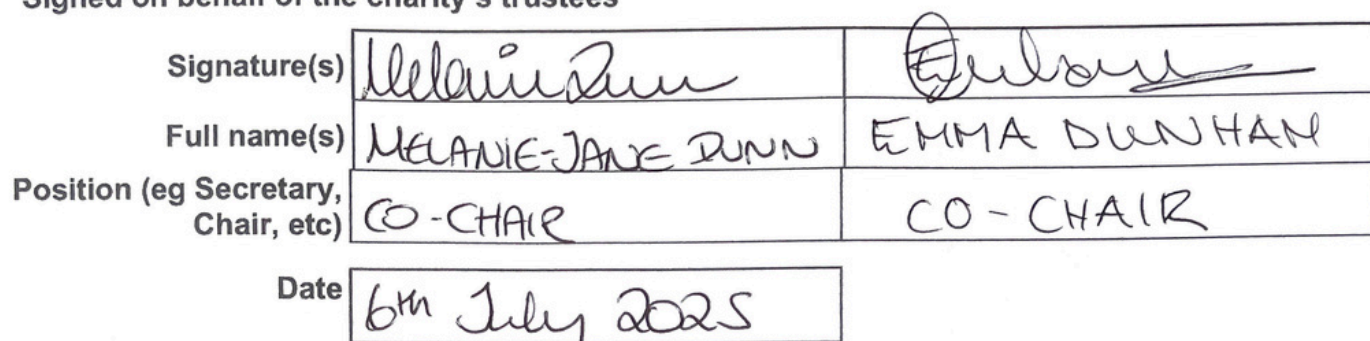 Signed on behalf of the charity's trustees
Signature(s) Melanie Dunn
Full name(s) MELANIE-JANE DUNN EMMA DUNHAM
Position (eg Secretary,
Chair, etc) CO-CHAIR CO-CHAIR
Date 6th July 2025